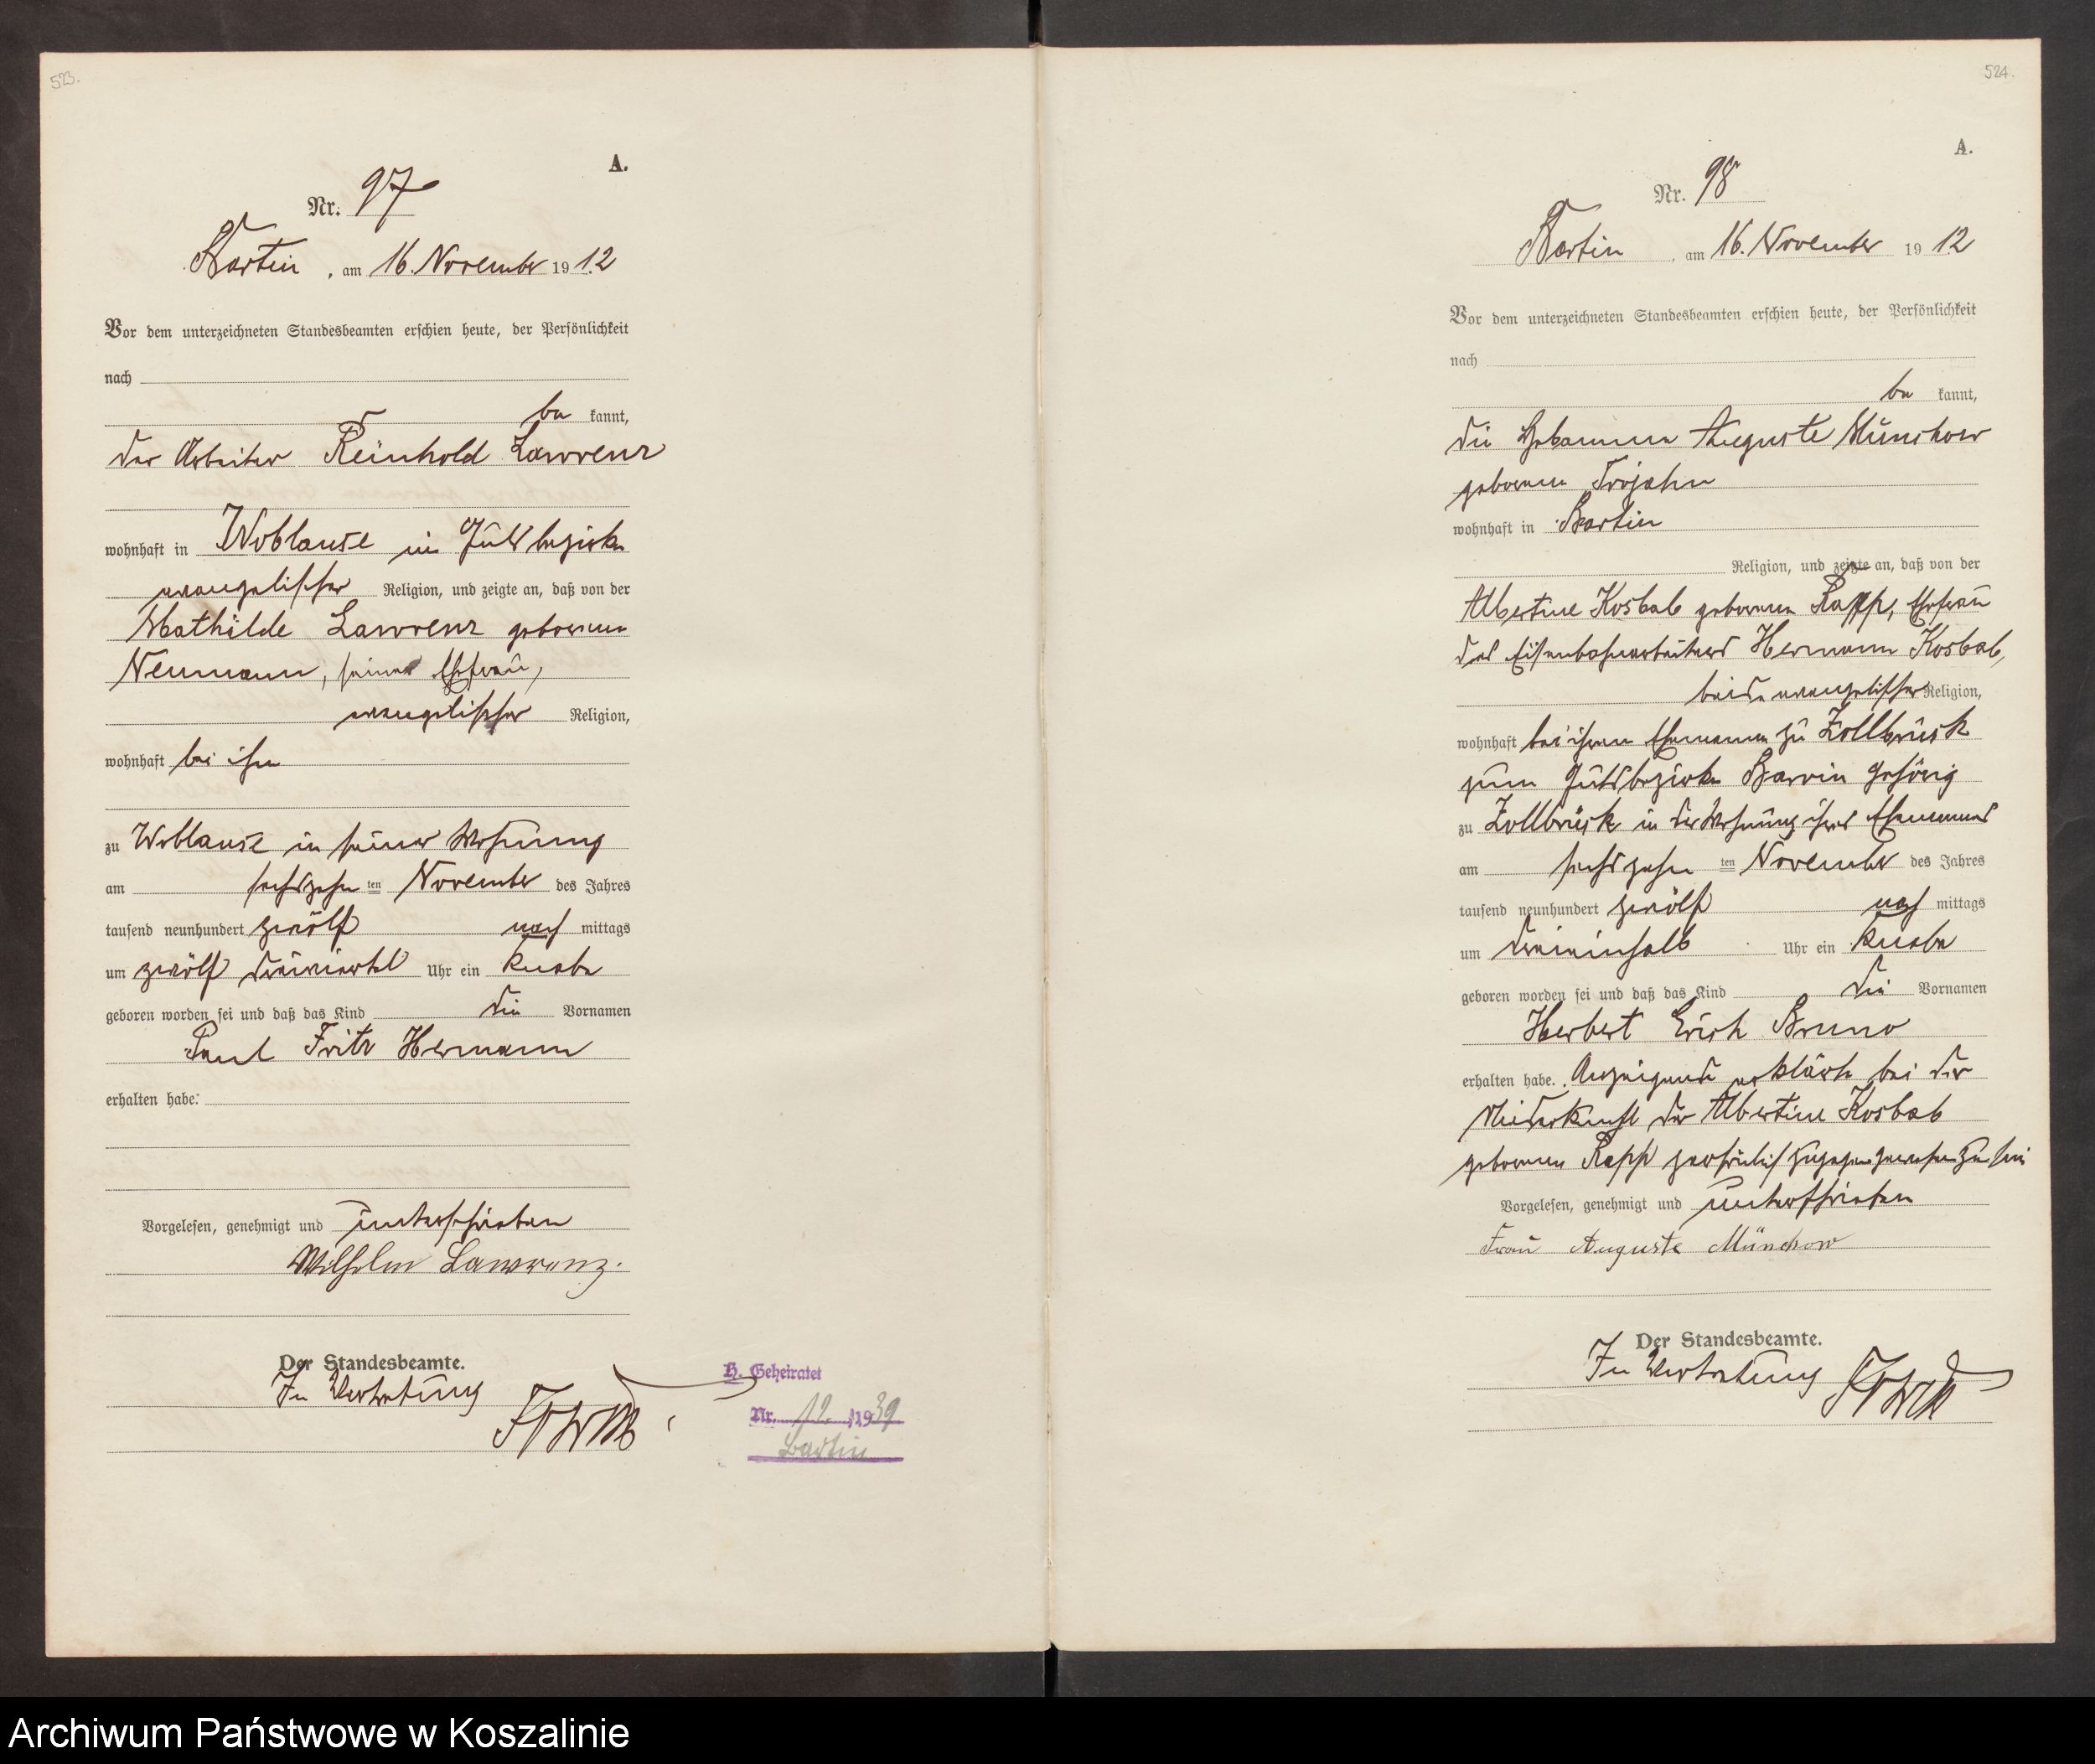 523.
A.
Nr. 97
Bartin, am 16. November 1912
Vor dem unterzeichneten Standesbeamten erschien heute, der Persönlichkeit
nach
be kannt,
der Arbeiter Reinhold Lawrenz
wohnhaft in Woblanse im Gutsbezirke
evangelischer Religion, und zeigte an, daß von der
Mathilde Lawrenz geborenen
Neumann, seiner Ehefrau,
evangelischer Religion,
wohnhaft bei ihm
zu Woblanse in seiner Wohnung
am sechszehn ten November des Jahres
tausend neunhundert zwölf nach mittags
um zwölf dreiviertel Uhr ein Knabe
geboren worden sei und daß das Kind die Vornamen
Paul Fritz Hermann
erhalten habe.
Vorgelesen, genehmigt und unterschrieben
Wilhelm Lawrenz.
Der Standesbeamte.
In Vertretung
H. Geheiratet
Nr. 12 /1939
Bartin
524.
A.
Nr. 98
Bartin, am 16. November 1912
Vor dem unterzeichneten Standesbeamten erschien heute, der Persönlichkeit
nach
be kannt,
die Hebamme Auguste Münchow
geborene Trojahn
wohnhaft in Bartin
Religion, und zeigte an, daß von der
Albertine Kosbab geborenen Rapp, Ehefrau
des Eisenbahnarbeiters Hermann Kosbab,
beide evangelischer Religion,
wohnhaft bei ihrem Ehemanne zu Zollbrück
zum Gutsbezirke Barvin gehörig
zu Zollbrück in der Wohnung ihres Ehemannes
am sechszehn ten November des Jahres
tausend neunhundert zwölf nach mittags
um dreieinhalb Uhr ein Knabe
geboren worden sei und daß das Kind die Vornamen
Herbert Erich Bruno
erhalten habe. Anzeigende erklärte bei der
Niederkunft der Albertine Kosbab
geborenen Rapp persönlich zugegen gewesen zu sein
Vorgelesen, genehmigt und unterschrieben
Frau Auguste Münchow
Der Standesbeamte.
In Vertretung
Archiwum Państwowe w Koszalinie